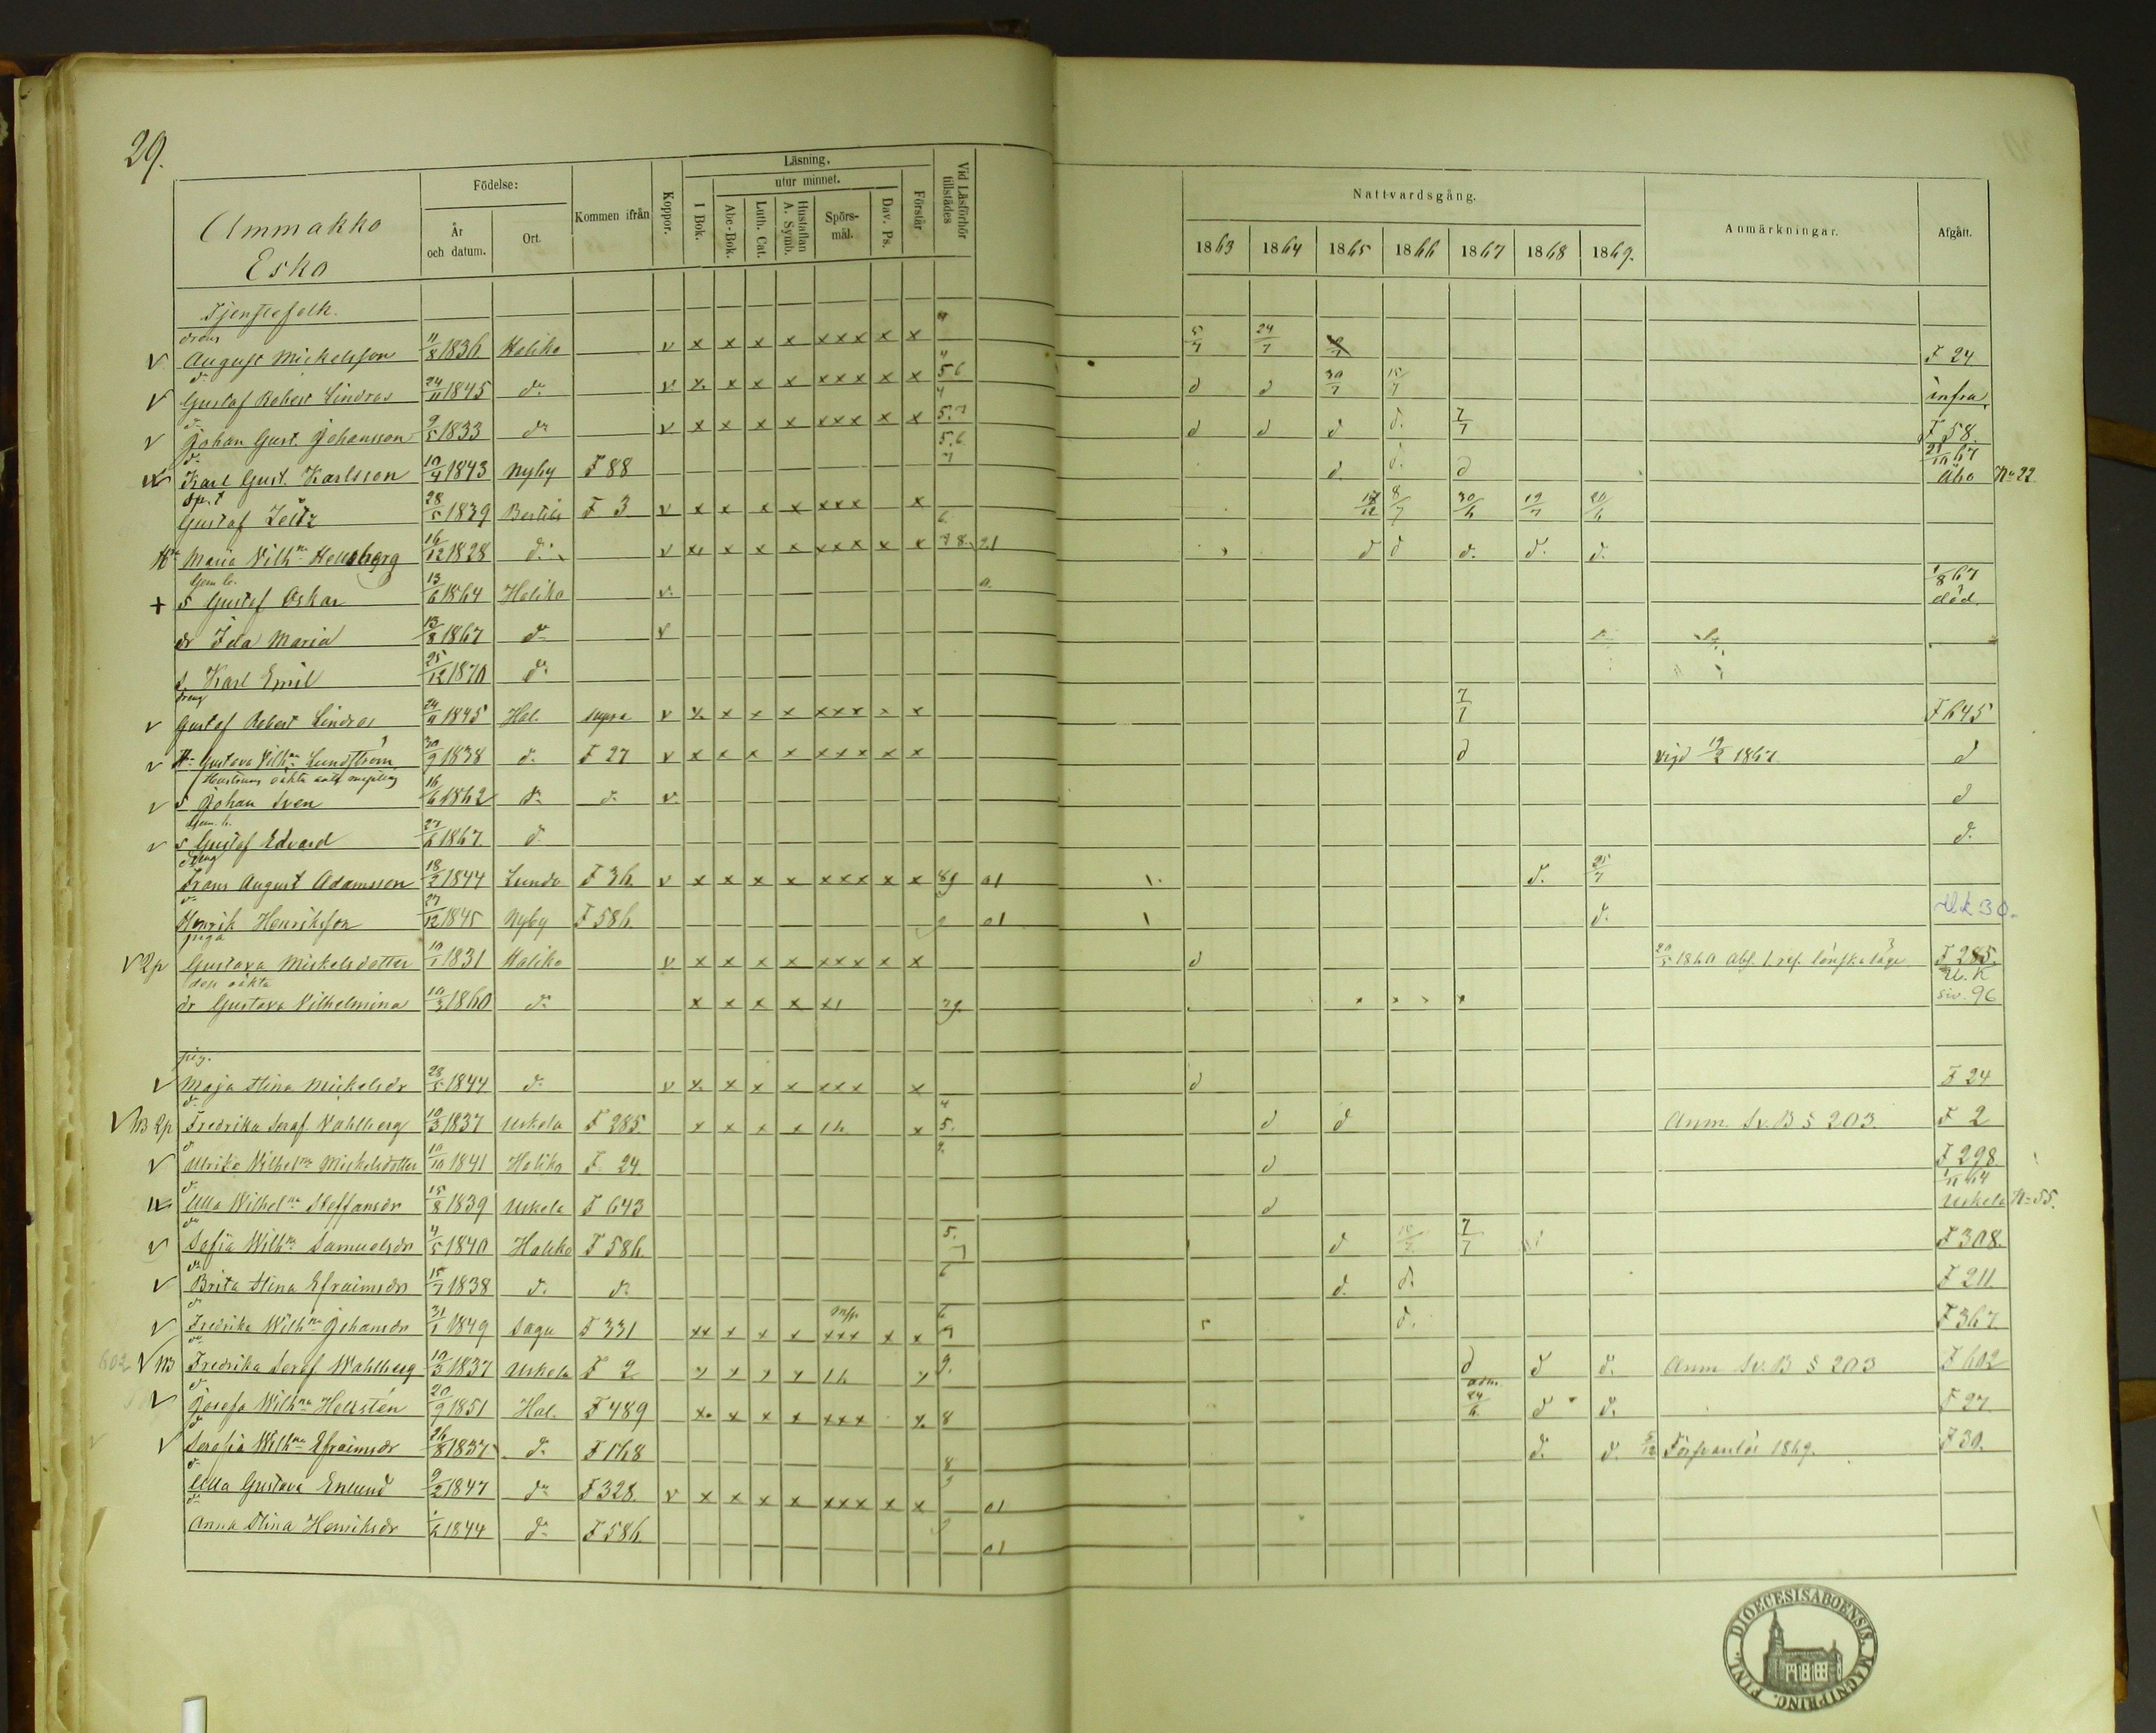 29.
Ammakko
Esko
Födelse:
År och datum.
Ort.
Kommen ifrån
Koppor.
Läsning.
utur minnet.
I Bok.
Abc-Bok.
Luth. Cat.
Hustaflan A. Symb.
Spörs-mål.
Dav. Ps.
Förstår
Vid Läsförhör tillstädes
Nattvardsgång.
1863 1864 1865 1866 1867 1868 1869.
Anmärkningar.
Afgått.
Tjenstefolk.
dreng
v August Mickelsson 11/8 1836 Haliko v x x x x xxx x x 5/7 24/7 F 24
d:o
v Gustaf Robert Lindros 24/11 1845 d:o v x x x x xxx x x 56 d d 30/7 15/7 infra
d:o
v Johan Gust. Johansson 9/5 1833 d:o v x x x x xxx x x 5.7 d d d d. 7/7 F 58.
d:o
Karl Gust. Karlsson 10/4 1843 Nyby F 88 d. d. d 21/10 67 Åbo No 22
Gustaf 28/5 1839 F 3 v x x x x xxx x 8/7 30/6 19/7 20/6
Maria Vilh:na Hellsberg 16/12 1828 d:o v x x x x xxx x x 78 d d d. d. d.
+ s Gustaf Oskar 13/6 1864 Haliko v 1/8 67 död.
dr Ida Maria 13/8 1867 d:o v
s. Karl Emil 25/12 1870 d:o
dreng
v Gustaf Robert Lindros 24/11 1845 Hal. supra v x x x x xxx x x 7/7 F 645
v H. Gustava Vilh:na Lundström 30/9 1838 d. F 27 v x x x x xxx x x d vigd 19/2 1867 d
v s Johan Sven 16/6 1862 d:o d. v d
v s Gustaf Edvard 27/6 1867. d. d.
dreng
Frans August Adamsson 18/2 1844 Lundo F 36. v x x x x xxx x x 89 d. 25/7
d:o
Henrik Henriksson 27/12 1845 Nyby F 586. d. 30.
piga
v 2p Gustava Mickelsdotter 10/1 1831 Haliko v x x x x xxx x x d F 285.
des oäkta
dr Gustava Vilhelmina 10/3 1860 d:o x x x x siv. 96
pig.
v Maja Stina Mickelsdr 28/5 1844 d:o v x x x x xxx x d F 24
d:o
v 2p Fredrika Seraf Wahlberg 10/3 1837 Uskela F 285 x x x x x 5. d d Anm. Sv. B § 203. F 2
d:o
v Ulrika Vilhel:na Mickelsdotter 10/10 1841 Haliko F. 24 d F 298
d:o
Ulla Wilhel:na Steffansdr 15/8 1839 Uskela F 643 d 1/11 64 Uskela No 55.
d:o
v Sofia Wilh:na Samuelsdr 4/5 1840 Haliko F 586. 5. 7 d 7/7 F 308.
d:o
v Brita Stina Efraimsdr 15/7 1838 d. d:o 6 d. d. F 211.
d:o
v Fredrika Wilh:na Johansdr 31/1 1849 Sagu F 331 xx x x x xxx x x 6 7 d. F 367.
d:o
602 v Fredrika Seraf Wahlberg 10/3 1837 Uskela F 2 9. d d d. Anm Sv. B § 203 F 602
d:o
v Josefa Wilh:na Hellstén 20/9 1851 Hal. F 489 x x x x xxx x 8 adm. 24/6 d d. F 27
d:o
v Serafia Wilh:na Efraimsdr 26/8 1837 d:o F 168 8 d. d. 5/12 Försvarslös 1869. F 30.
d:o
Ulla Gustava Enlund 9/2 1847 d:o F 328. v x x x x xxx x x
d:o
Anna Stina Henriksdr 1844 d:o F 586.
DIOECESIS ABOENSIS. MAGNI PRINC. FINL.